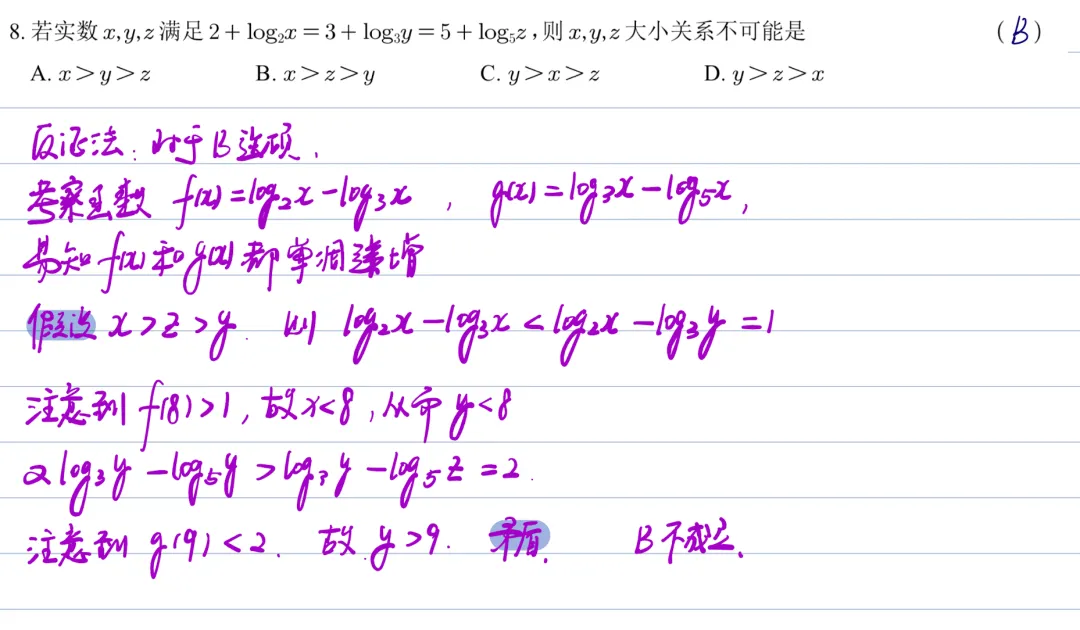 8. 若实数 x,y,z 满足 2+log₂x=3+log₃y=5+log₅z,则 x,y,z 大小关系不可能是 (B)
A. x>y>z B. x>z>y C. y>x>z D. y>z>x
反证法:对于B选项,
考察函数 f(x)=log₂x-log₃x , g(x)=log₃x-log₅x,
易知 f(x)和g(x)都单调递增
假设 x>z>y. 则 log₂x-log₃x<log₂x-log₃y=1
注意到 f(8)>1,故x<8,从而 y<8
又log₃y-log₅y>log₃y-log₅z=2.
注意到 g(9)<2. 故 y>9. 矛盾. B不成立.